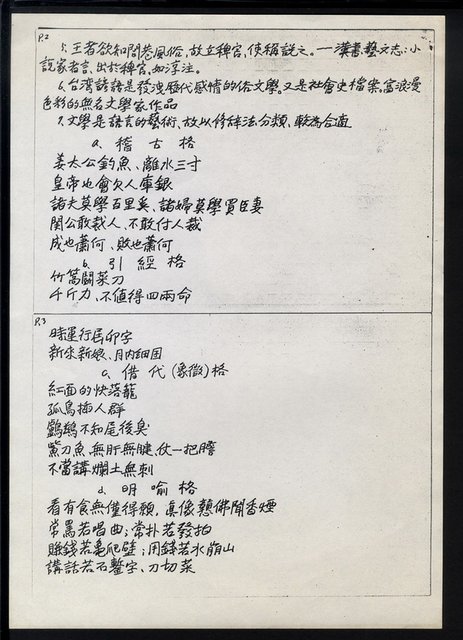 P.2
5.王者欲知閭巷風俗,故立稗官,使稱說之。——漢書藝文志:小
說家者言,出於稗官,如淳注。
6.台灣諺語是發洩歷代感情的俗文學。又是社會史檔案。富浪漫
色彩的無名文學家作品
7.文學是語言的藝術、故以修辞法分類、較為合適
a、稽古格
姜太公釣魚、離水三寸
皇帝也會欠人庫銀
諸夫莫學百里奚、諸婦莫學買臣妻
関公敢裁人、不敢付人裁
成也蕭何、敗也蕭何
b、引經格
竹篙鬪菜刀
千斤力、不值得四兩命
P.3
時運行居卯字
新來新娘、月內細囝
c、借代(象徵)格
紅面的快落籠
孤鳥插人群
鷓鴣不知尾後臭
紫刀魚、無肝無腱、仗一把膽
不當講爛土無刺
d、明喻格
看有食無僅得頼、真像憩佛聞香煙
常罵若唱曲;常扑若發拍
賺錢若亀爬壁;用錢若水崩山
講話若石鏨字、刀切菜